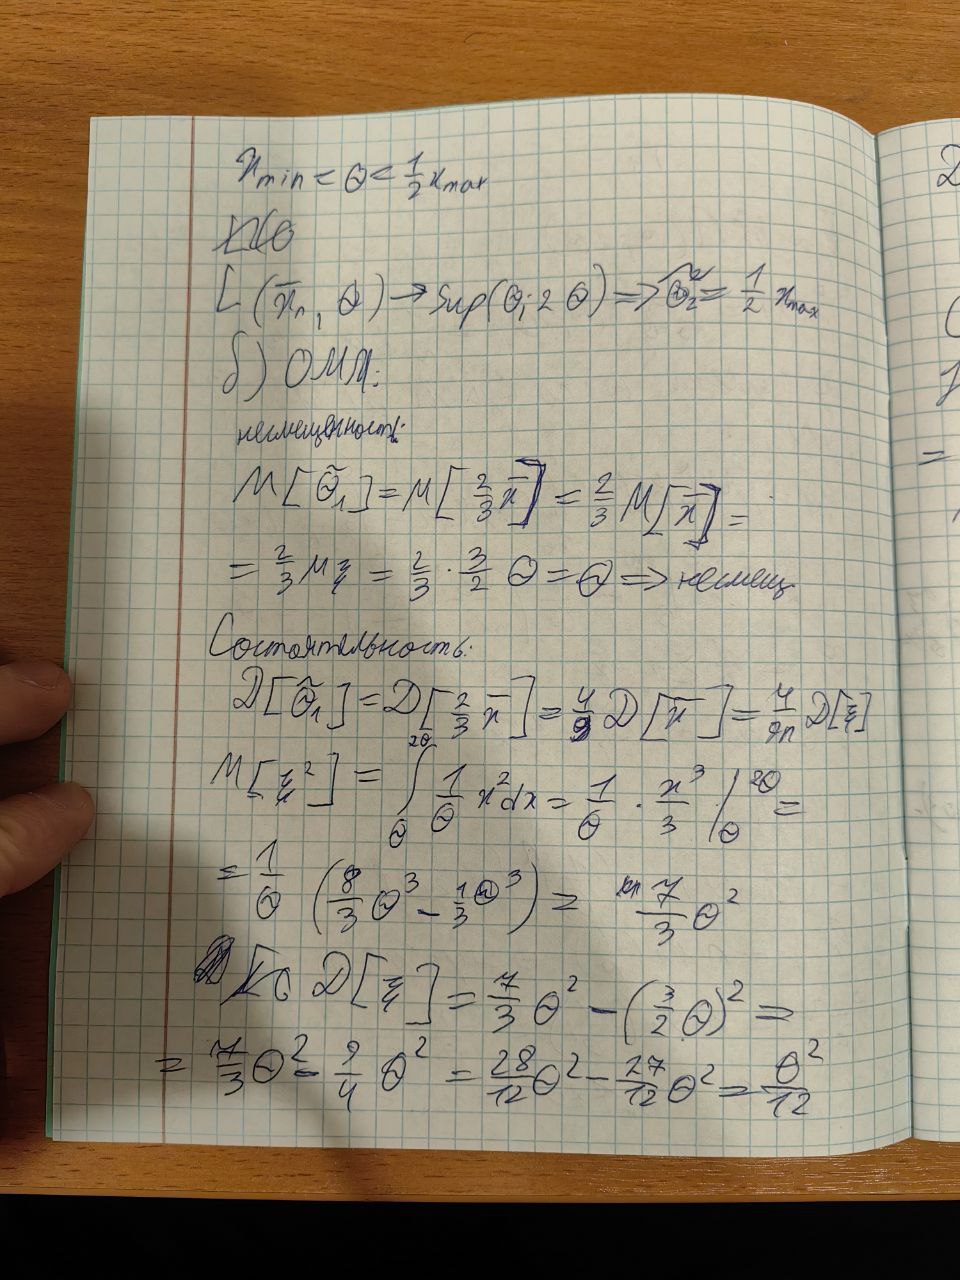 x_min < θ < 1/2 x_max
L(x̄_n, θ) → sup(θ; 2θ) ⇒ θ̃_2 = 1/2 x_max
б) ОММ:
несмещенность:
M[θ̃_1] = M[2/3 x̄] = 2/3 M[x̄] =
= 2/3 Mξ = 2/3 · 3/2 θ = θ ⇒ несмещ
Состоятельность:
D[θ̃_1] = D[2/3 x̄] = 4/9 D[x̄] = 4/9n D[ξ]
M[ξ²] = ∫_θ^2θ 1/θ x² dx = 1/θ · x³/3 |_θ^2θ =
= 1/θ (8/3 θ³ - 1/3 θ³) = 7/3 θ²
D[ξ] = 7/3 θ² - (3/2 θ)² =
= 7/3 θ² - 9/4 θ² = 28/12 θ² - 27/12 θ² = θ²/12